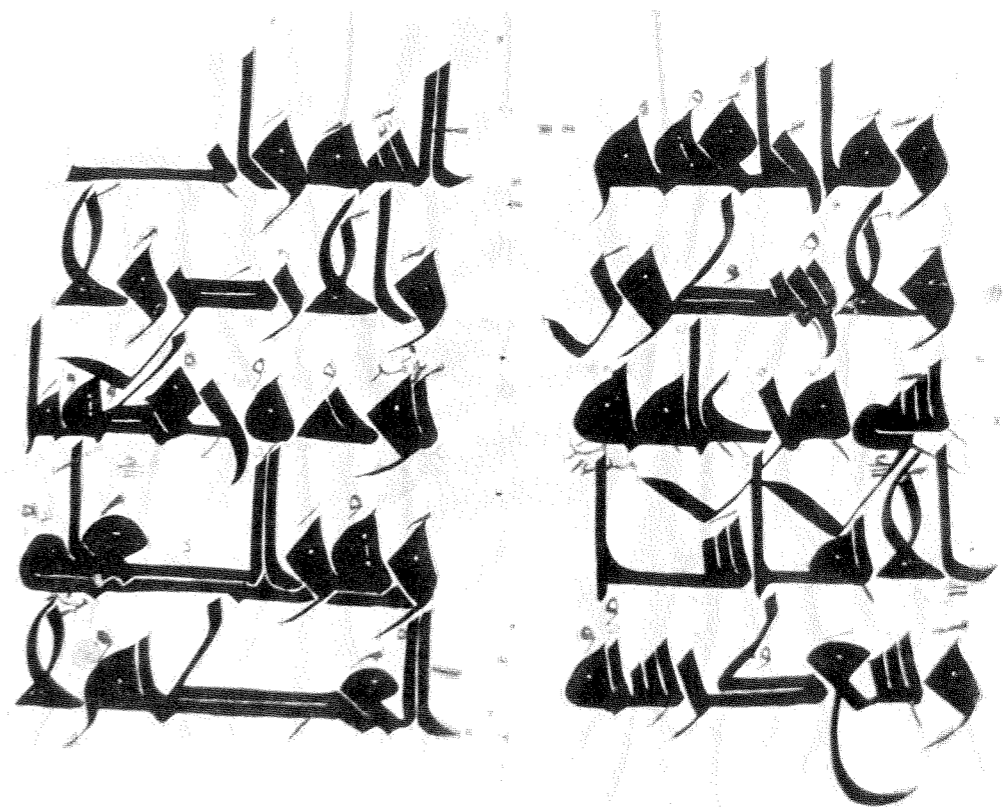 وما خلفهم
ولا يحيطون
بشى من علمه
الا بما شا
وسع كرسيه
السموات
والارض ولا
يوده حفظهما
وهو العلى
العظيم